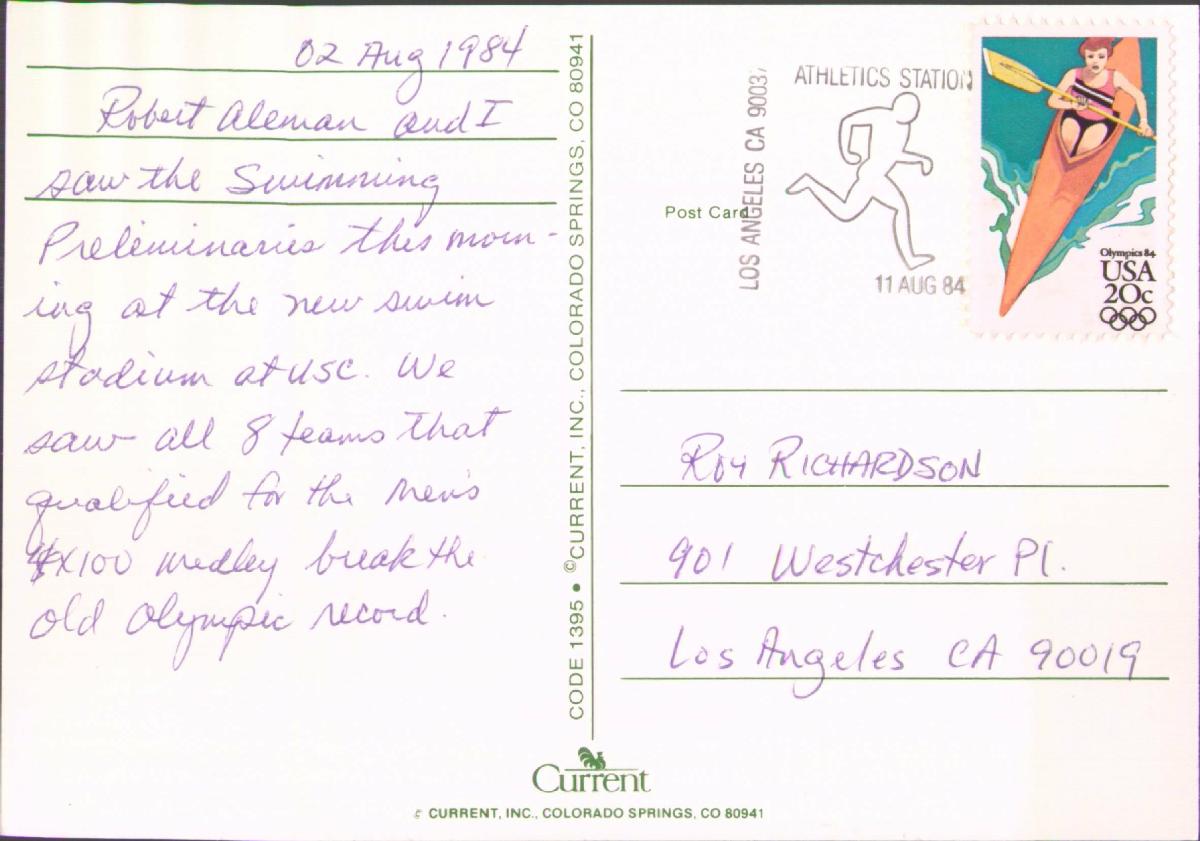 02 Aug 1984
Robert Aleman and I
saw the Swimming
Preliminaries this morn-
ing at the new swim
stadium at USC. We
saw all 8 teams that
qualified for the Men's
4x100 medley break the
old Olympic record.
CODE 1395 • ©CURRENT, INC., COLORADO SPRINGS, CO 80941
Post Card
LOS ANGELES CA 90037
ATHLETICS STATION
11 AUG 84
Olympics 84
USA
20c
Roy RICHARDSON
901 Westchester Pl.
Los Angeles CA 90019
Current
© CURRENT, INC., COLORADO SPRINGS, CO 80941